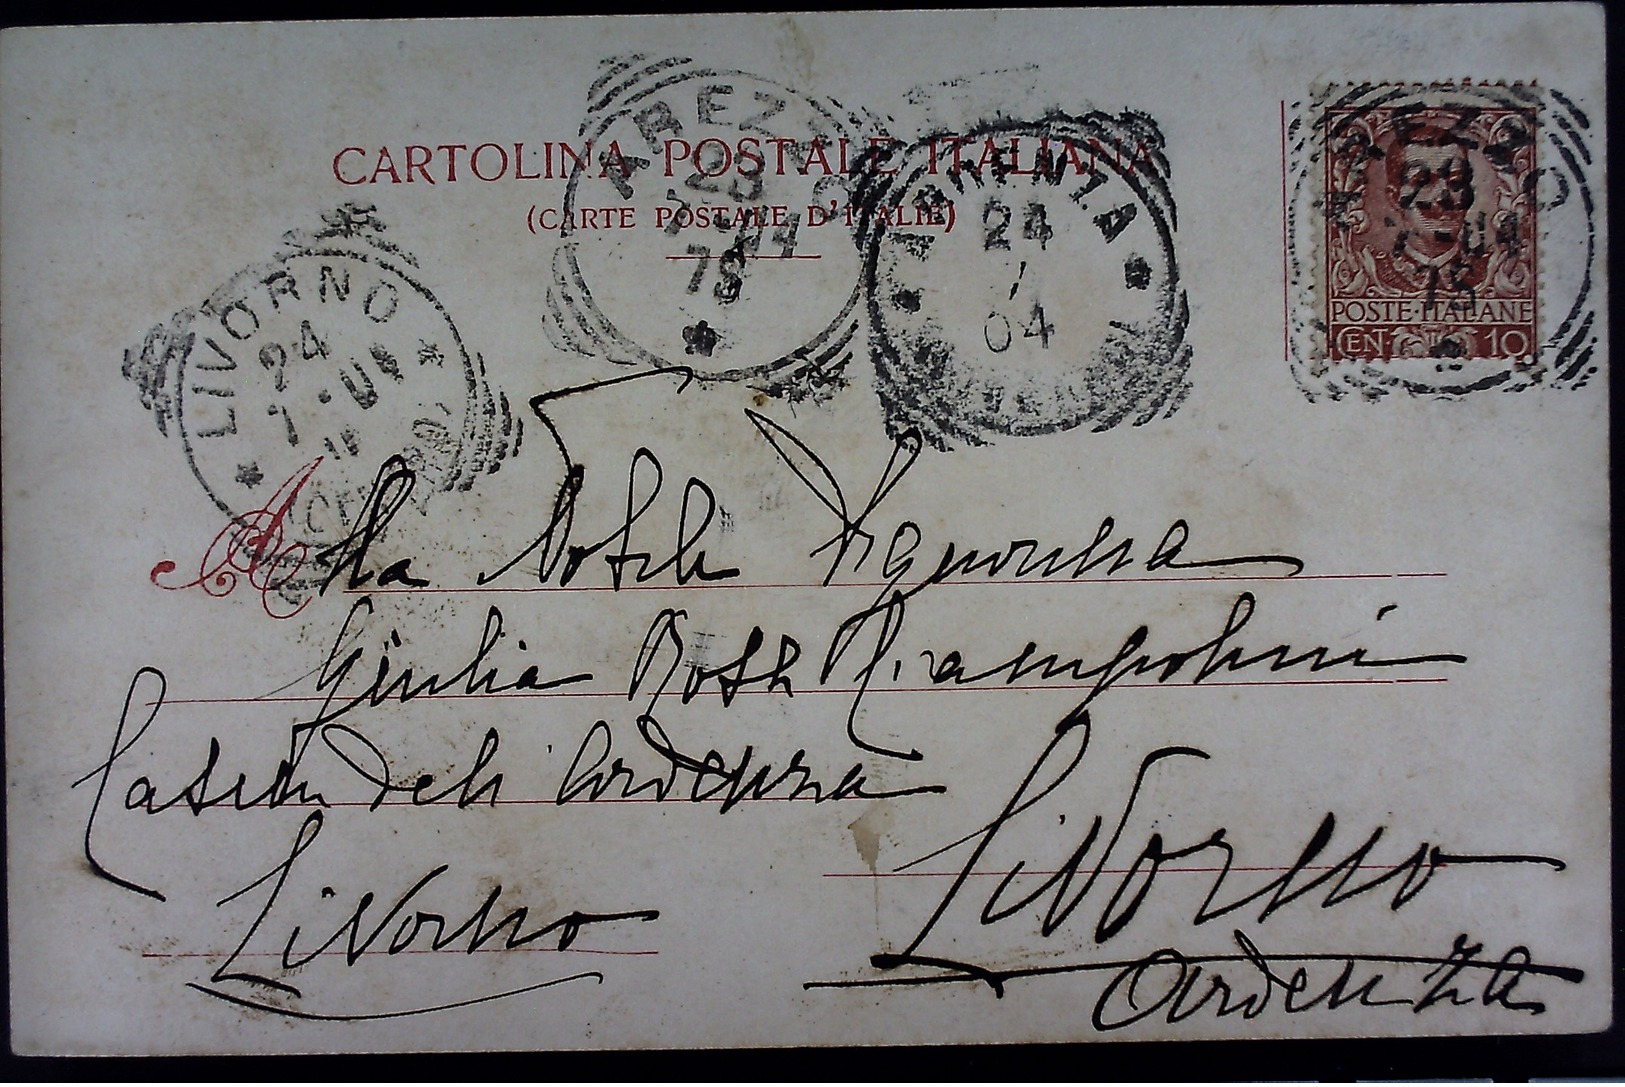 CARTOLINA POSTALE ITALIANA
(CARTE POSTALE D'ITALIE)
AREZZO
23
7-04
7S
ARDENZA
24
7
04
AREZZO
23
7-04
7S
POSTE·ITALIANE
CEN. 10
LIVORNO
24
7-04
(CENTRO)
Alla Nobile Signorina
Giulia Rossi Rampolini
Casini dell' Ardenza
Livorno
Livorno
Ardenza